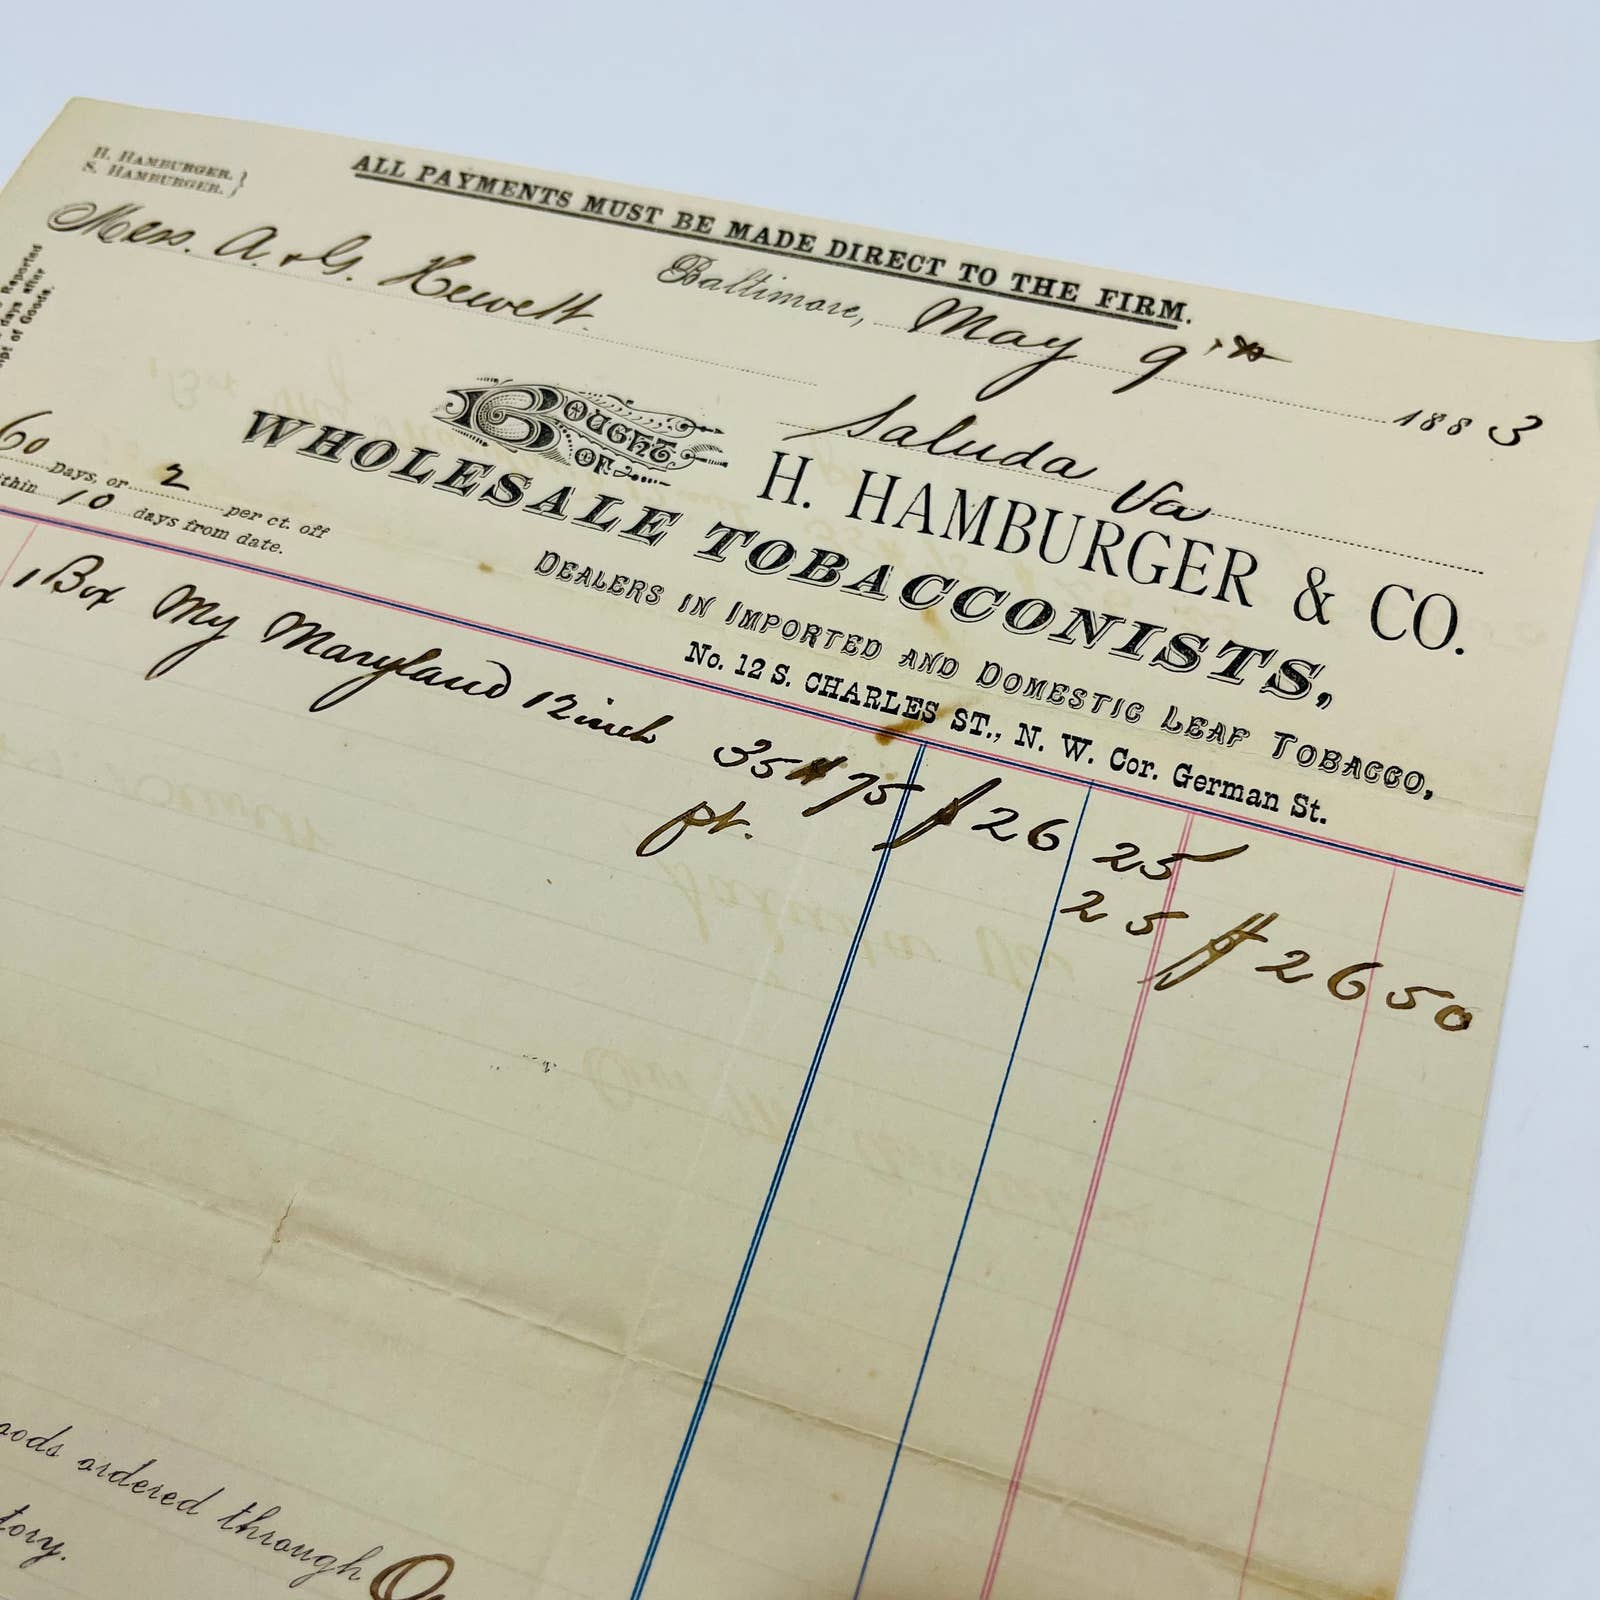 H. HAMBURGER.
S. HAMBURGER. }
ALL PAYMENTS MUST BE MADE DIRECT TO THE FIRM.
Baltimore, May 9th 1883
Mess. A. & G. Hewett.
Saluda Va
Reported
days after
of Goods.
BOUGHT OF H. HAMBURGER & CO.
WHOLESALE TOBACCONISTS,
DEALERS IN IMPORTED AND DOMESTIC LEAF TOBACCO,
No. 12 S. CHARLES ST., N. W. Cor. German St.
60 Days, or 2 per ct. off
10 days from date.
1 Box My Maryland 12 inch 35# 75 $26 25
pt. 25 $26 50
ordered through